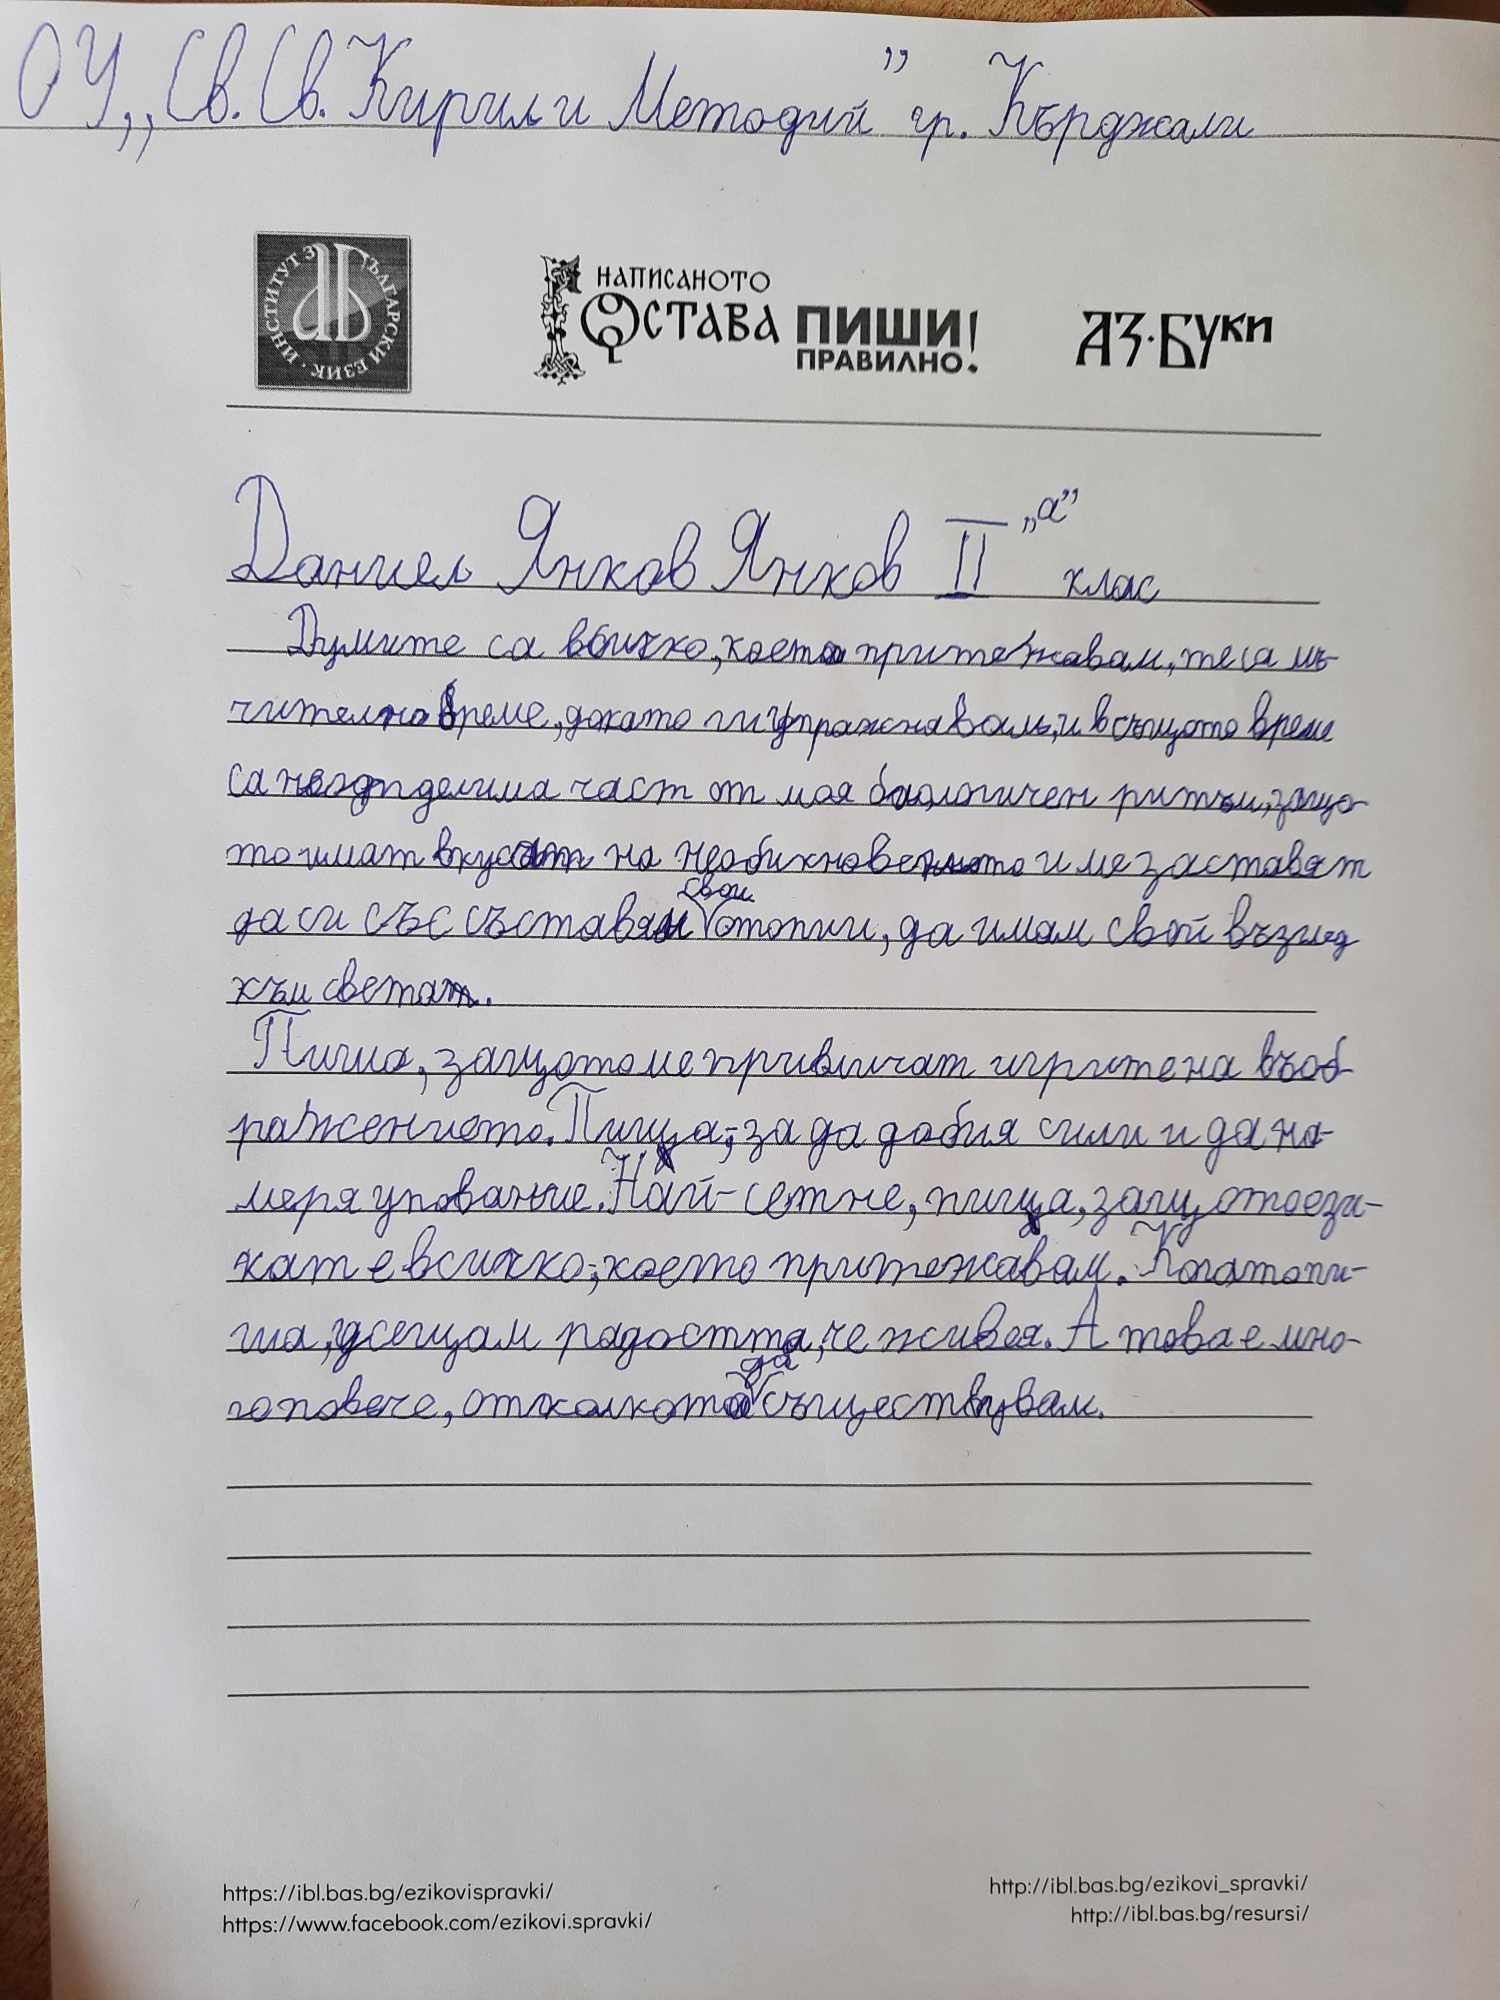 ОУ „Св. Св. Кирил и Методий” гр. Кърджали
ИНСТИТУТ ЗА БЪЛГАРСКИ ЕЗИК
НАПИСАНОТО
ОСТАВА ПИШИ
ПРАВИЛНО!
АЗ·БУКИ
Даниел Янков Янков II „а” клас
Думите са всичко, което притежавам, те са мъ-
чително време, докато ги упражнявам, и в същото време
са неотделима част от моя биологичен ритъм, защо-
то имат вкусът на необикновеното и ме заставят
да си със съставям свои утопии, да имам свой възглед
към светат.
Пиша, защото ме привличат игрите на въоб-
ражението. Пища, за да добия сили и да на-
меря упование. Най-сетне, пища, защото ези-
кат е всичко, което притежавам. Когато пи-
ша, усещам радостта, че живея. А това е мно-
го повече, отколкото да съществувам.
https://ibl.bas.bg/ezikovispravki/
https://www.facebook.com/ezikovi.spravki/
http://ibl.bas.bg/ezikovi_spravki/
http://ibl.bas.bg/resursi/